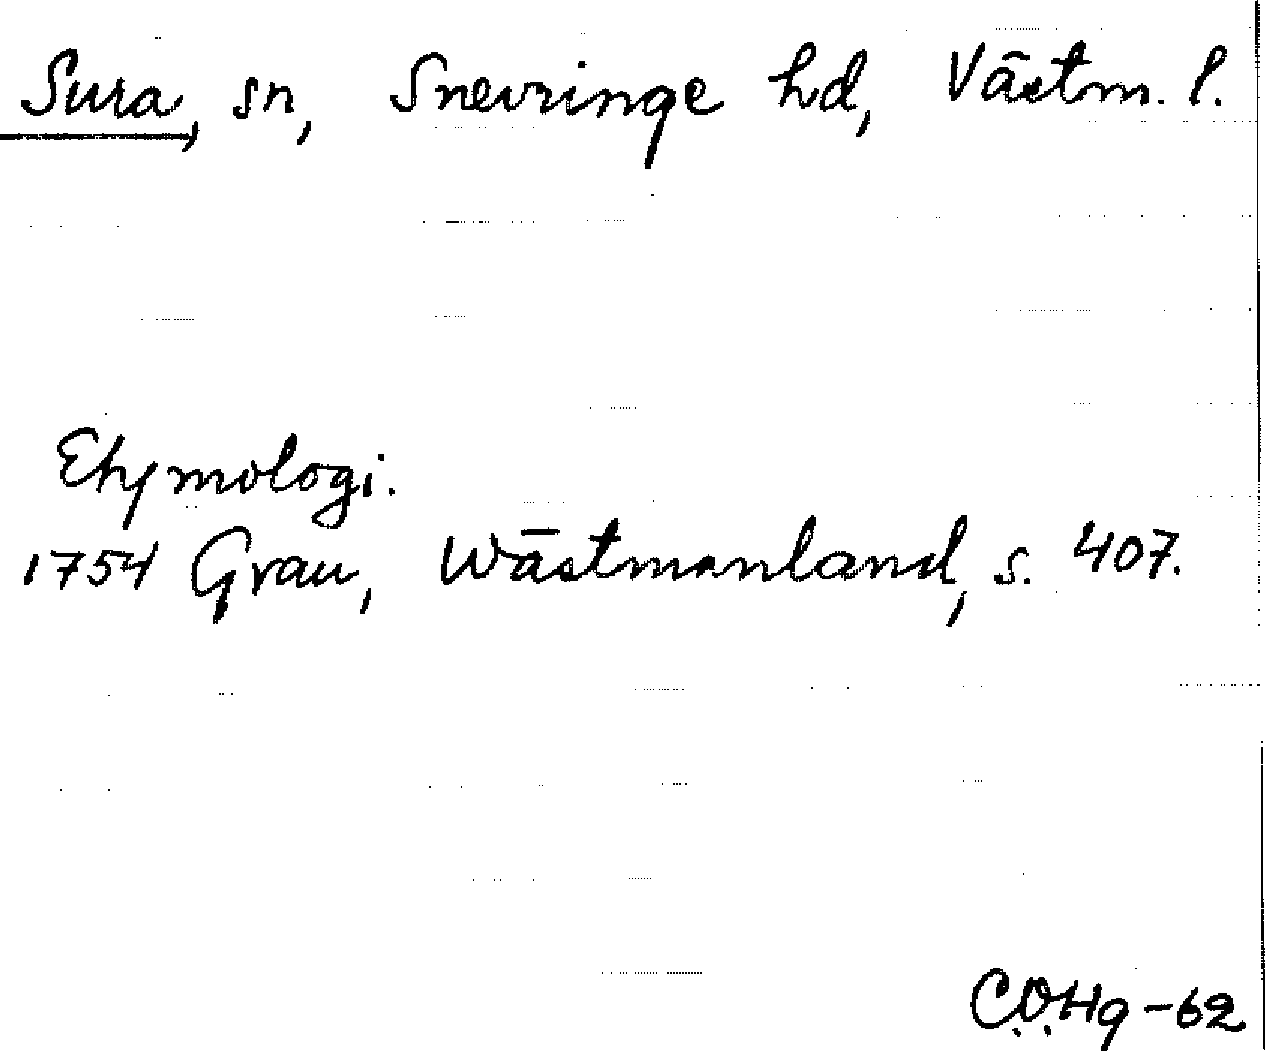 Sura, sn, Snevringe hd, Västm. l.
Etymologi.
1754 Grau, Wästmanland, s. 407.
C.O.Hg-62